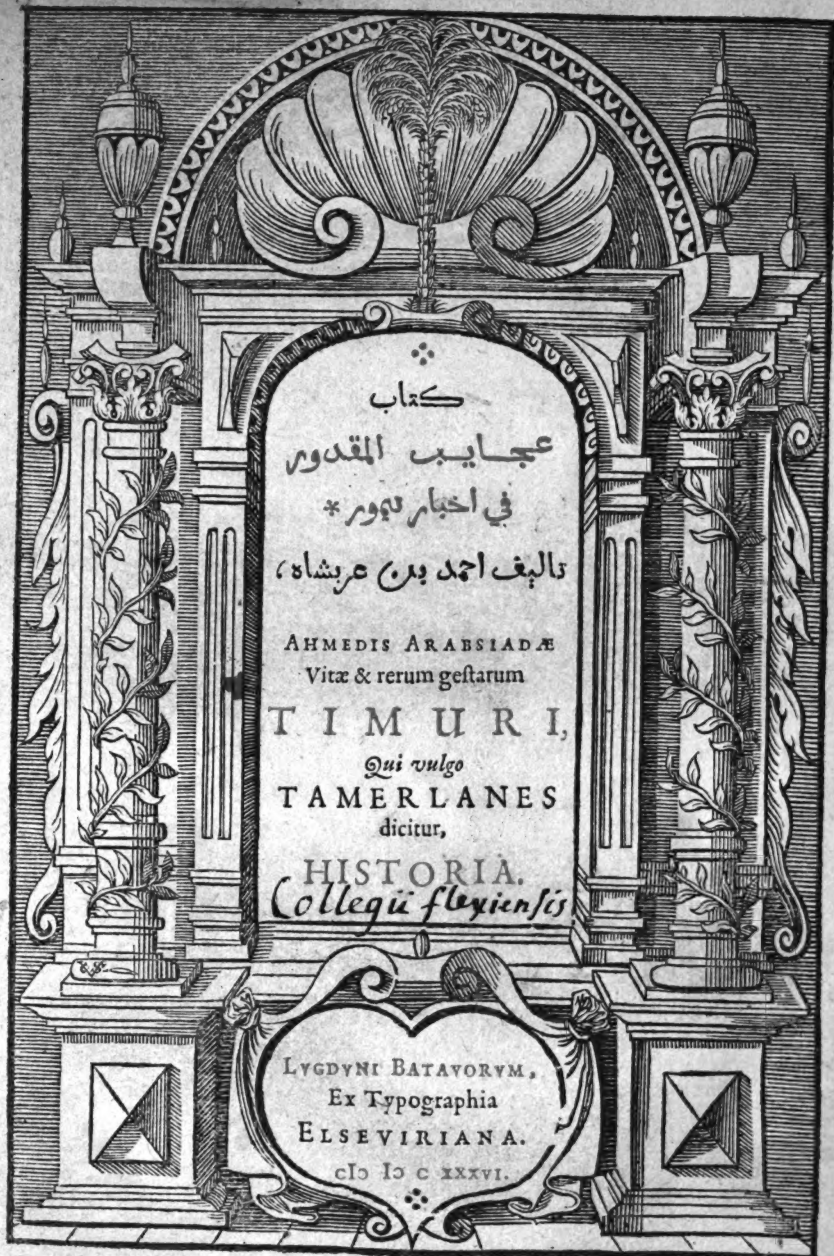 كتاب
عجايب المقدور
في اخبار تيمور *
تاليف احمد بن عربشاه،
AHMEDIS ARABSIADÆ
Vitæ & rerum geſtarum
TIMURI,
Qui vulgo
TAMERLANES
dicitur,
HISTORIA.
Collegii flexienſis
LVGDVNI BATAVORVM,
Ex Typographia
ELSEVIRIANA.
cIↄ Iↄ c XXXVI.